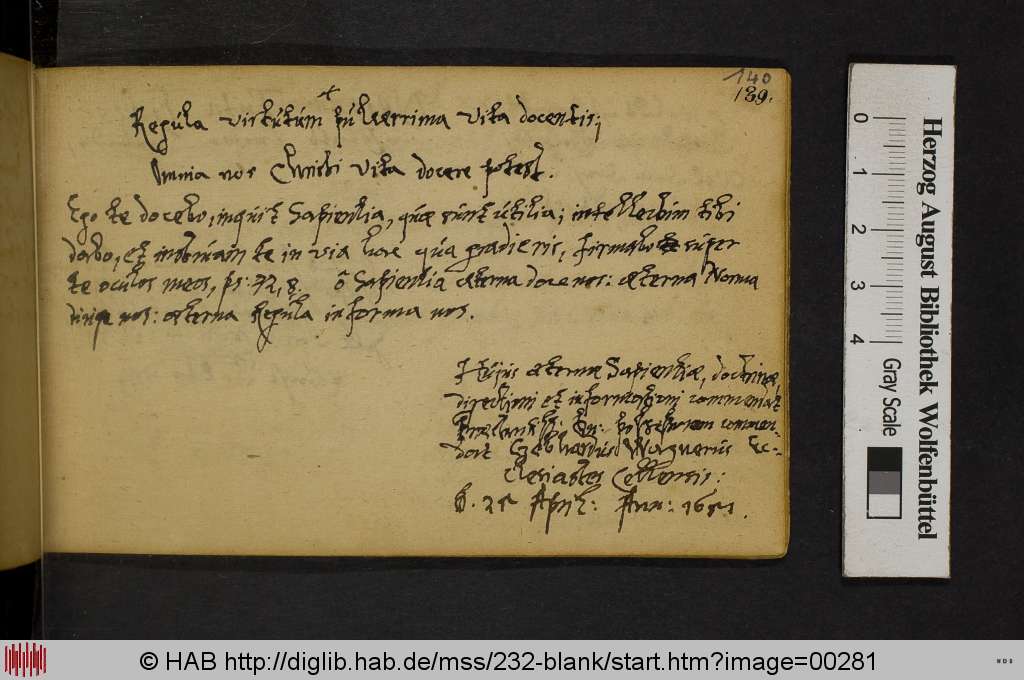 140
139.
Regula virtutum pulcerrima vita docentis;
Omnia nos Christi vita docere potest.
Ego te docebo, inquit Sapientia, quæ sunt utilia; intellectum tibi
dabo, et instruam te in via hac qua gradieris, firmabo super
te oculos meos, ps: 32, 8. ô Sapientia æterna doce nos: æterna Norma
dirige nos: æterna Regula informa nos.
Hujus æternæ Sapientiæ, doctrinæ,
directioni et informationi commendat
Dn: commen-
dat Gebhardus Wagnerus Ec-
clesiastes Cellensis:
d. 25 April: Ann: 1651.
Herzog August Bibliothek Wolfenbüttel
0 1 2 3 4
Gray Scale
© HAB http://diglib.hab.de/mss/232-blank/start.htm?image=00281